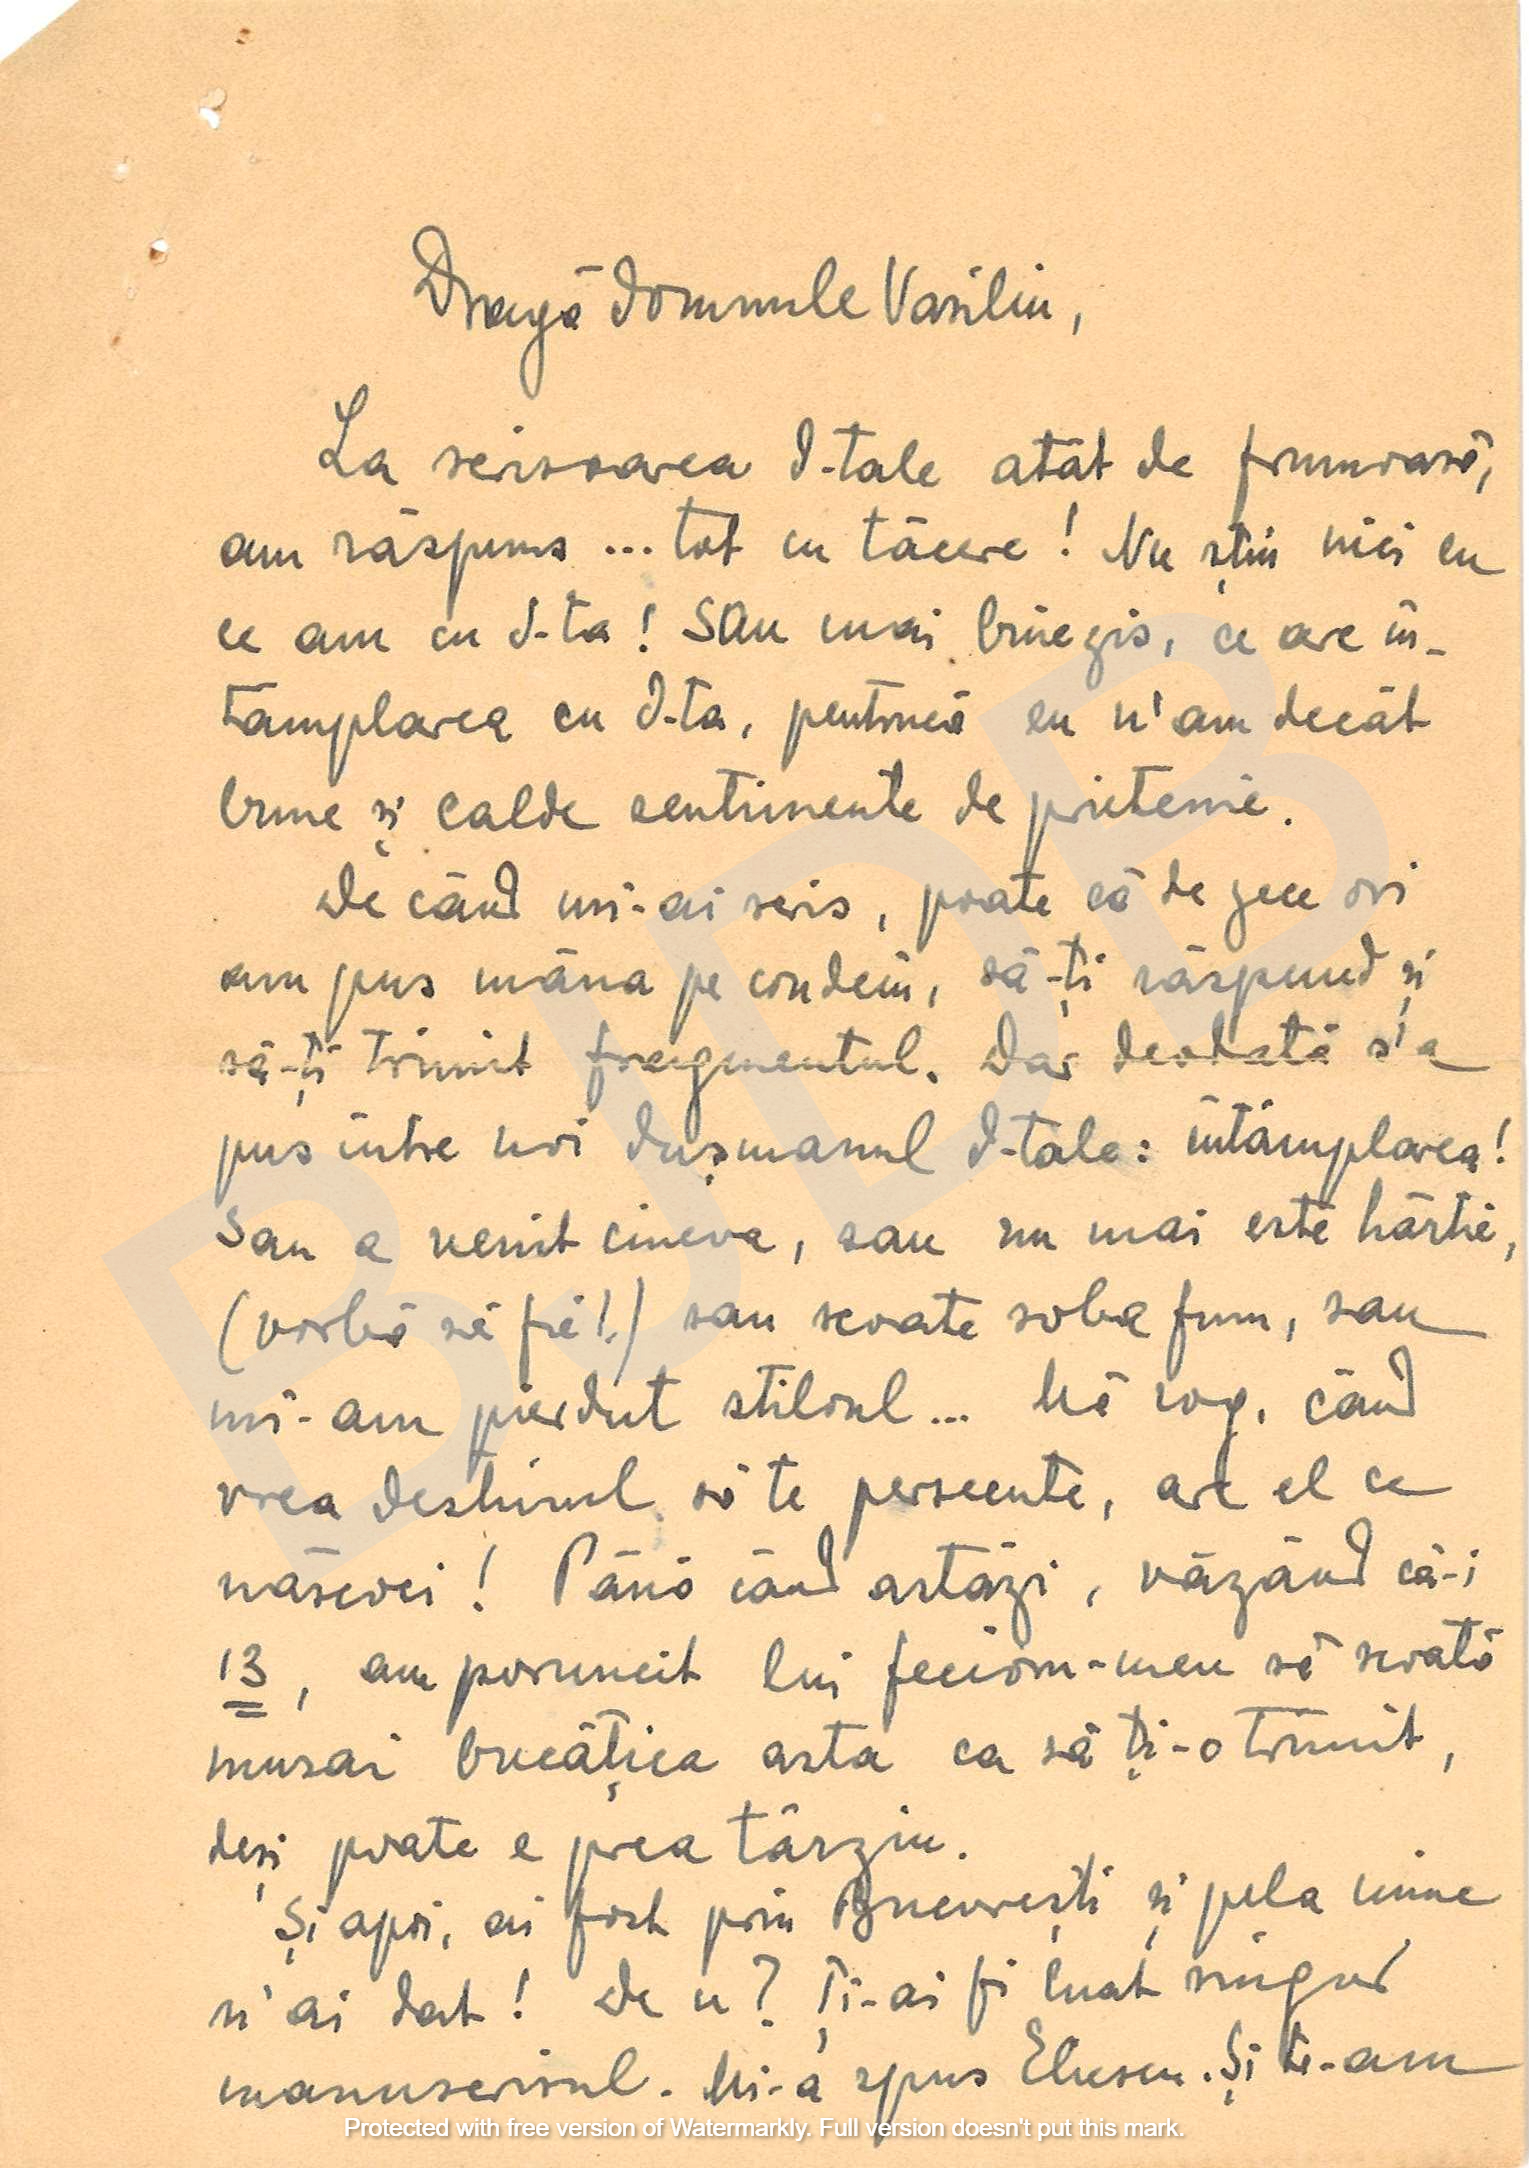 Dragă domnule Vasiliu,
La scrisoarea d-tale atât de frumoasă,
am răspuns ... tot cu tăcere ! Nu știu nici eu
ce am cu d-ta ! Sau mai bine zis, ce are în-
tâmplarea cu d-ta, pentrucă eu n'am decât
bune și calde sentimente de prietenie.
De când mi-ai scris, poate că de zece ori
am pus mâna pe condeiu, să-ți răspund și
să-ți trimit fragmentul. Dar deodată s'a
pus între noi dușmanul d-tale: întâmplarea!
Sau a venit cineva, sau nu mai este hârtie,
(vorbă să fie!.) sau scoate soba fum, sau
mi-am pierdut stiloul... Mă rog, când
vrea destinul să te persecute, are el ce
născoci ! Până când astăzi, văzând că-i
13, am poruncit lui fecioru-meu să scoată
musai bucățica asta ca să ți-o trimit,
deși poate e prea târziu.
Și apoi, ai fost prin București și pela mine
n'ai dat ! De ce ? Ți-ai fi luat singur
manuscrisul. Mi-a spus . Și te-am
Protected with free version of Watermarkly. Full version doesn't put this mark.
BJDB